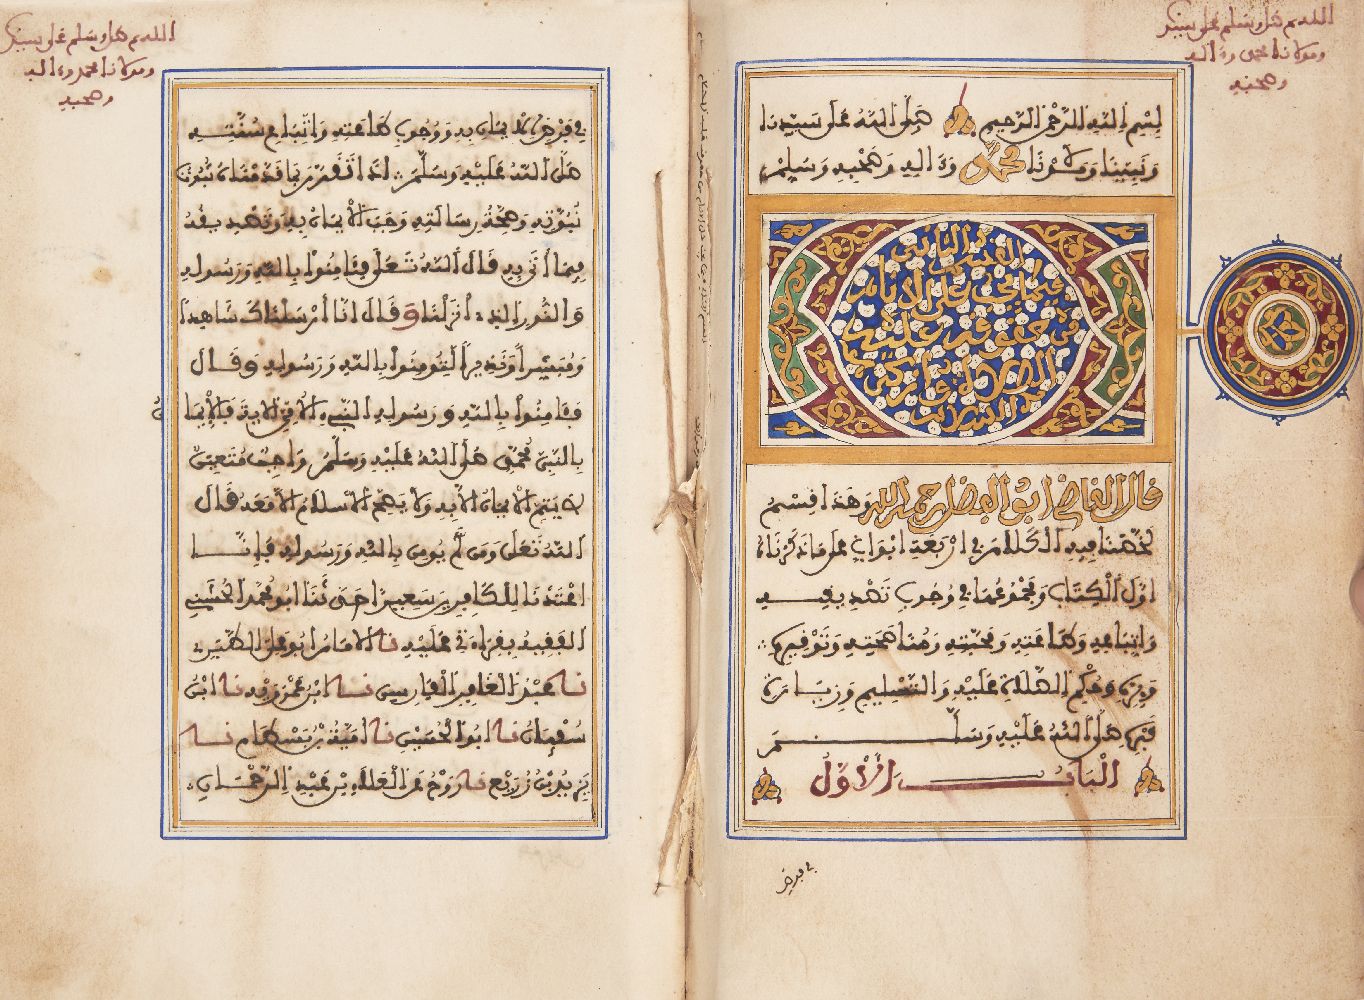 اللهم صل وسلم على سيدنا
ومولانا محمد وءاله
وصحبه
بسم الله الرحمن الرحيم صلى الله على سيدنا
ونبينا ومولانا محمد وءاله وصحبه وسلم
القسم الثاني
فيما يجب على الأنام
من حقوقه عليه
الصلاة وأزكى
السلام
قال القاضي أبو الفضل رحمه الله وهذا قسم
لخصنا فيه الكلام في أربعة أبواب على ما ذكرناه
أول الكتاب ومجموعها في وجوب تصديقه
واتباعه وطاعته ومحبته ومناصحته وتوقيره
وبره وحكم الصلاة عليه والتسليم وزيارة
قبره صلى الله عليه وسلم
الباب الأول
في فرض
اللهم صل وسلم على سيدنا
ومولانا محمد وءاله
وصحبه
في فرض الإيمان به ووجوب طاعته واتباع سنته
صلى الله عليه وسلم إذا تقرر بما قدمناه ثبوت
نبوته وصحة رسالته وجب الإيمان به وتصديقه
فيما أتى به قال الله تعلى فئامنوا بالله ورسوله
والنور الذي أنزلنا وقال إنا أرسلناك شاهدا
ومبشرا ونذيرا لتومنوا بالله ورسوله وقال
فئامنوا بالله ورسوله النبيء الأمي الآية فالإيمان
بالنبي محمد صلى الله عليه وسلم واجب متعين
لا يتم الإيمان إلا به ولا يصح إسلام إلا معه قال
الله تعلى ومن لم يومن بالله ورسوله فإنا
أعتدنا للكافرين سعيرا حدثنا أبو محمد الخشني
الفقيه بقراءتي عليه نا الإمام أبو علي الطبري
نا عبد الغافر الفارسي نا ابن عمرويه نا ابن
سفيان نا أبو الحسين نا أمية بن بسطام نا
يزيد بن زريع نا روح عن العلاء بن عبد الرحمان